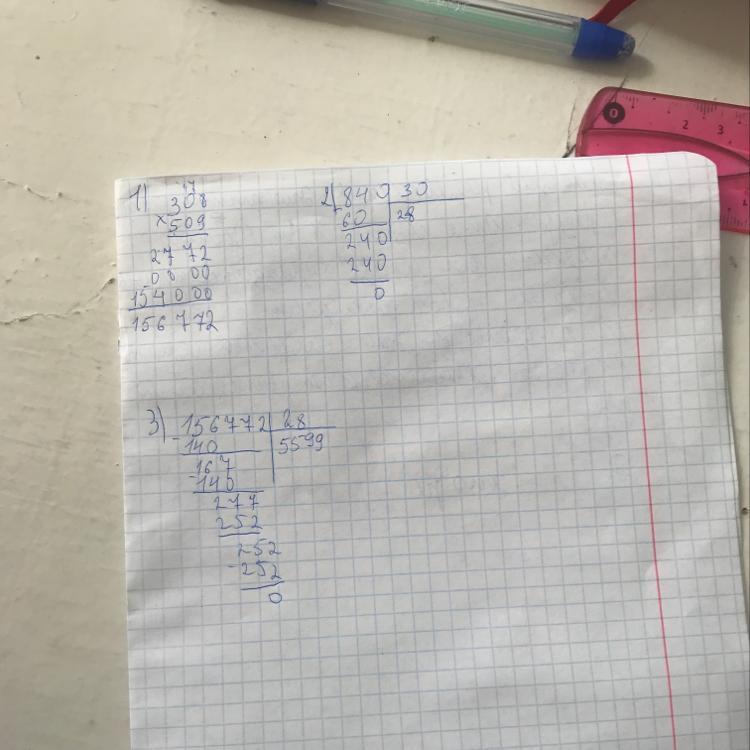 1)
47
308
×509
2772
0000
154000
156772
2) 840 30
60 28
240
240
0
3) -156772 28
140 5599
-167
140
277
252
252
-252
0
0 2 3